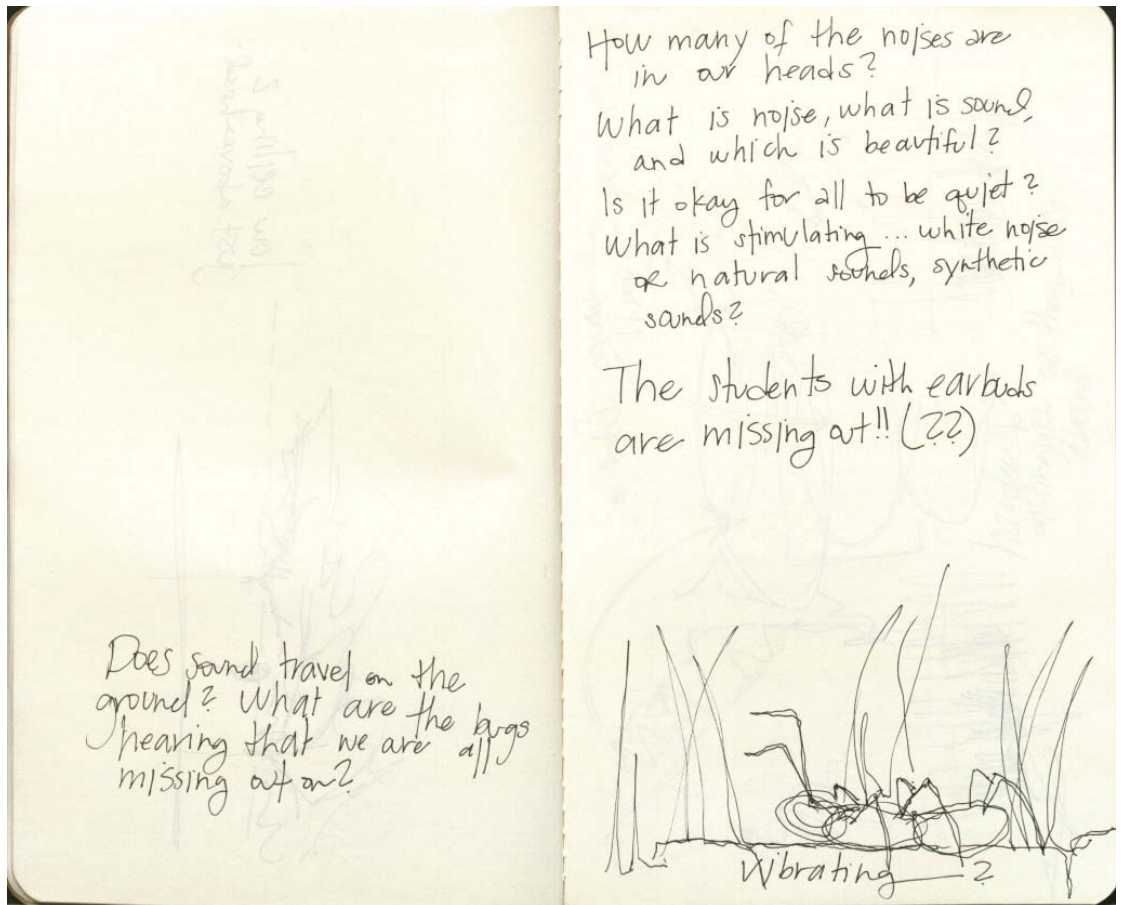 Does sound travel on the
ground? What are the bugs
hearing that we are all
missing out on?
How many of the noises are
in our heads?
What is noise, what is sound,
and which is beautiful?
Is it okay for all to be quiet?
What is stimulating... white noise
or natural sounds, synthetic
sounds?
The students with earbuds
are missing out!! (??)
Vibrating ?